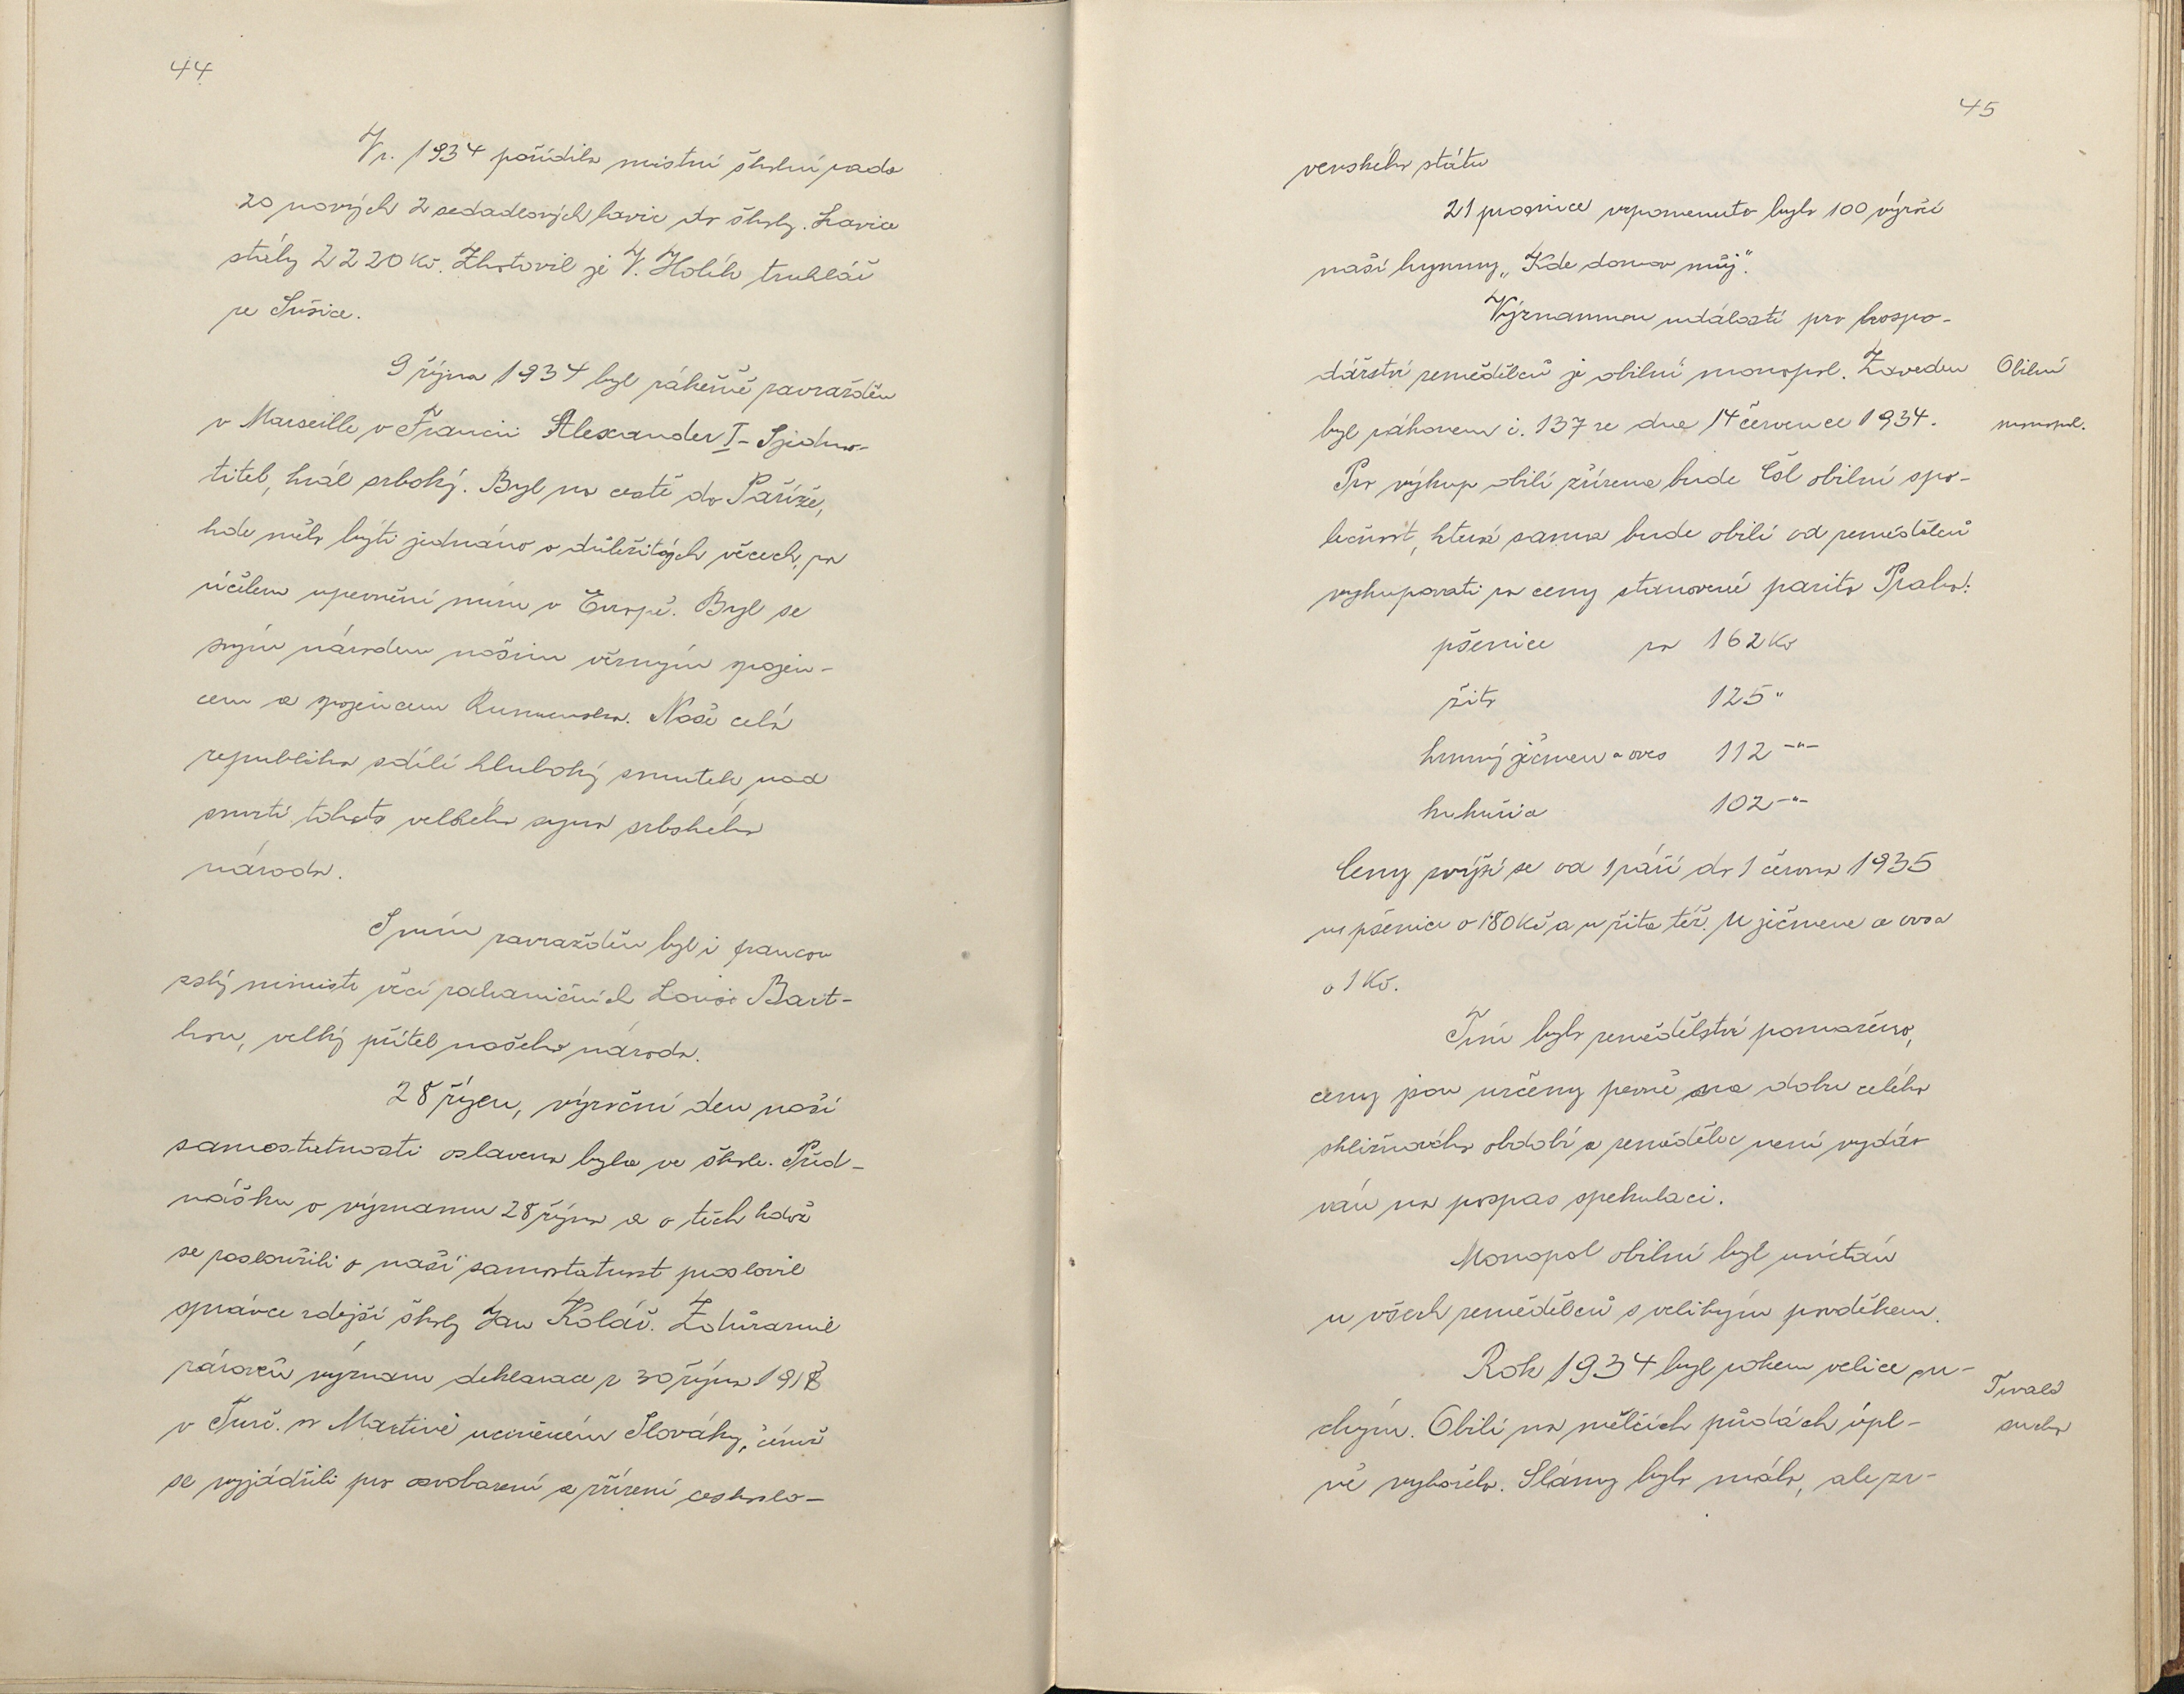 44
V r. 1934 pořídila mistní školní rada
20 nových 2 sedadlových lavic do školy. Lavice
stály 2220 Kč. Zhotovil je V. Holík truhlář
ze Sušice.
9 října 1934 byl zákeřně zavražděn
v Marseille v Francii Alexander I - Sjedno-
titel, král srbský. Byl na cestě do Paříže,
kde mělo býti jednáno o důležitých věcech, za
účelem upevnění míru v Evropě. Byl se
svým národem naším věrným spojen-
cem a spojencem Rumunska. Naše celá
republika sdílí hluboký smutek nad
smrtí tohoto velkého syna srbského
národa.
S ním zavražděn byl i francou
zský ministr věcí zahraničních Louis Bart-
hou, velký přítel našeho národa.
28 říjen, výroční den naší
samostatnosti oslavena byla ve škole. Před-
nášku o významu 28 října a o těch kdož
se zasloužili o naší samostatnost proslovil
správce zdejší školy Jan Kolář. Zdůraznil
zároveň význam deklarace z 30 října 1918
v Turč. sv Martině učiněném Slováky, čímž
se vyjádřili pro osvobození a zřízení českoslo-
45
venského státu
21 prosince vzpomenuto bylo 100 výročí
naší hymny „Kde domov můj".
Významnou událostí pro hospo-
dářství zemědělců je obilní monopol. Zaveden
Obilní
byl zákonem č. 137 ze dne 14 července 1934.
monopol.
Pro výkup obilí zřízena bude Čsl obilní spo-
lečnost, která sama bude obilí od zemědělců
vykupovati za ceny stanovené parita Praha:
pšenice za 162 Kč
žito 125 "
krmný ječmen a oves 112 -"-
kukuřice 102 -"-
Ceny zvýší se od 1 září do 1 června 1935
u pšenice o 1·80 Kč a u žita též. U ječmene a ovsa
o 1 Kč.
Tím bylo zemědělství pomoženo,
ceny jsou určeny pevně na dobu celého
sklizňového období a zemědělec není vydáv
ván na pospas spekulaci.
Monopol obilní byl uvítán
u všech zemědělců s velikým povděkem.
Rok 1934 byl rokem velice su-
Trvalé
chým. Obilí na mělčích půdách úpl-
sucho
ně vyhořelo. Slámy bylo málo, ale zr-